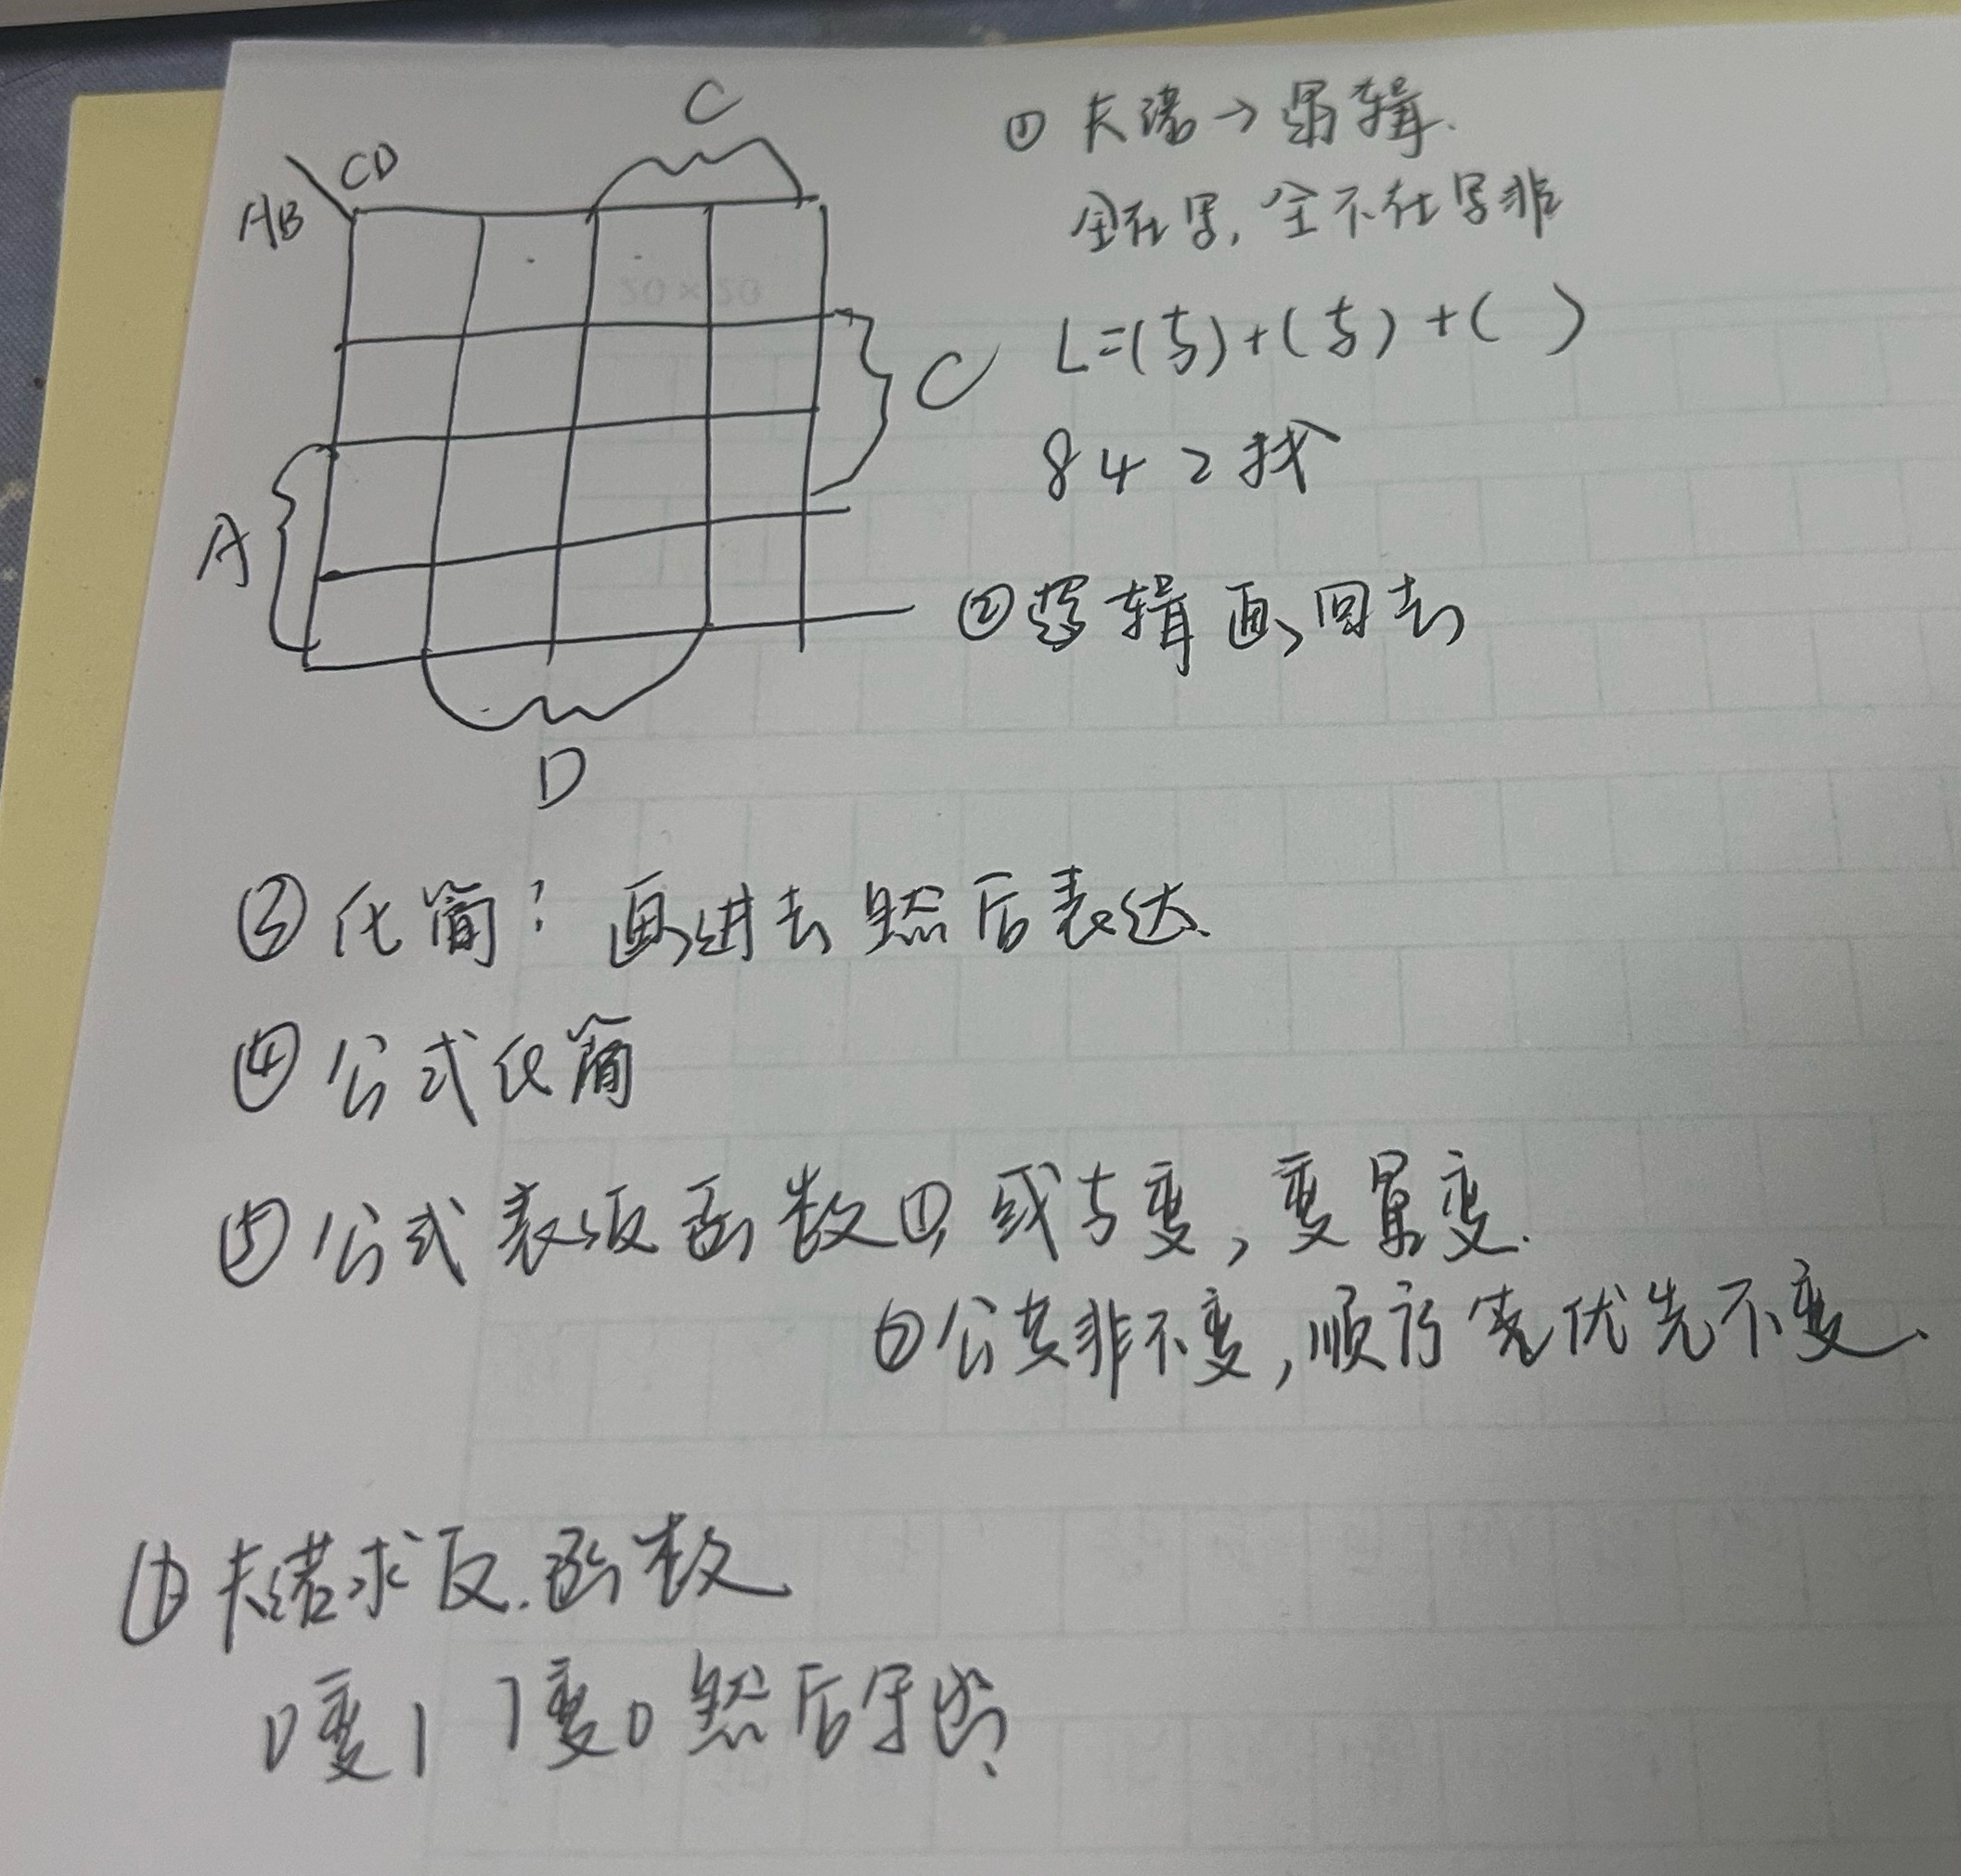 C
CD
AB
C
A
D
① 卡诺→逻辑.
全在写, 全不在写非
L=(与)+(与)+( )
842找
②逻辑画回去
③化简: 画进去然后表达.
④公式化简
⑤公式表反函数①或与变, 变量变.
②公共非不变, 顺序优先不变.
卡诺求反函数
0变1 1变0然后写出
20×20